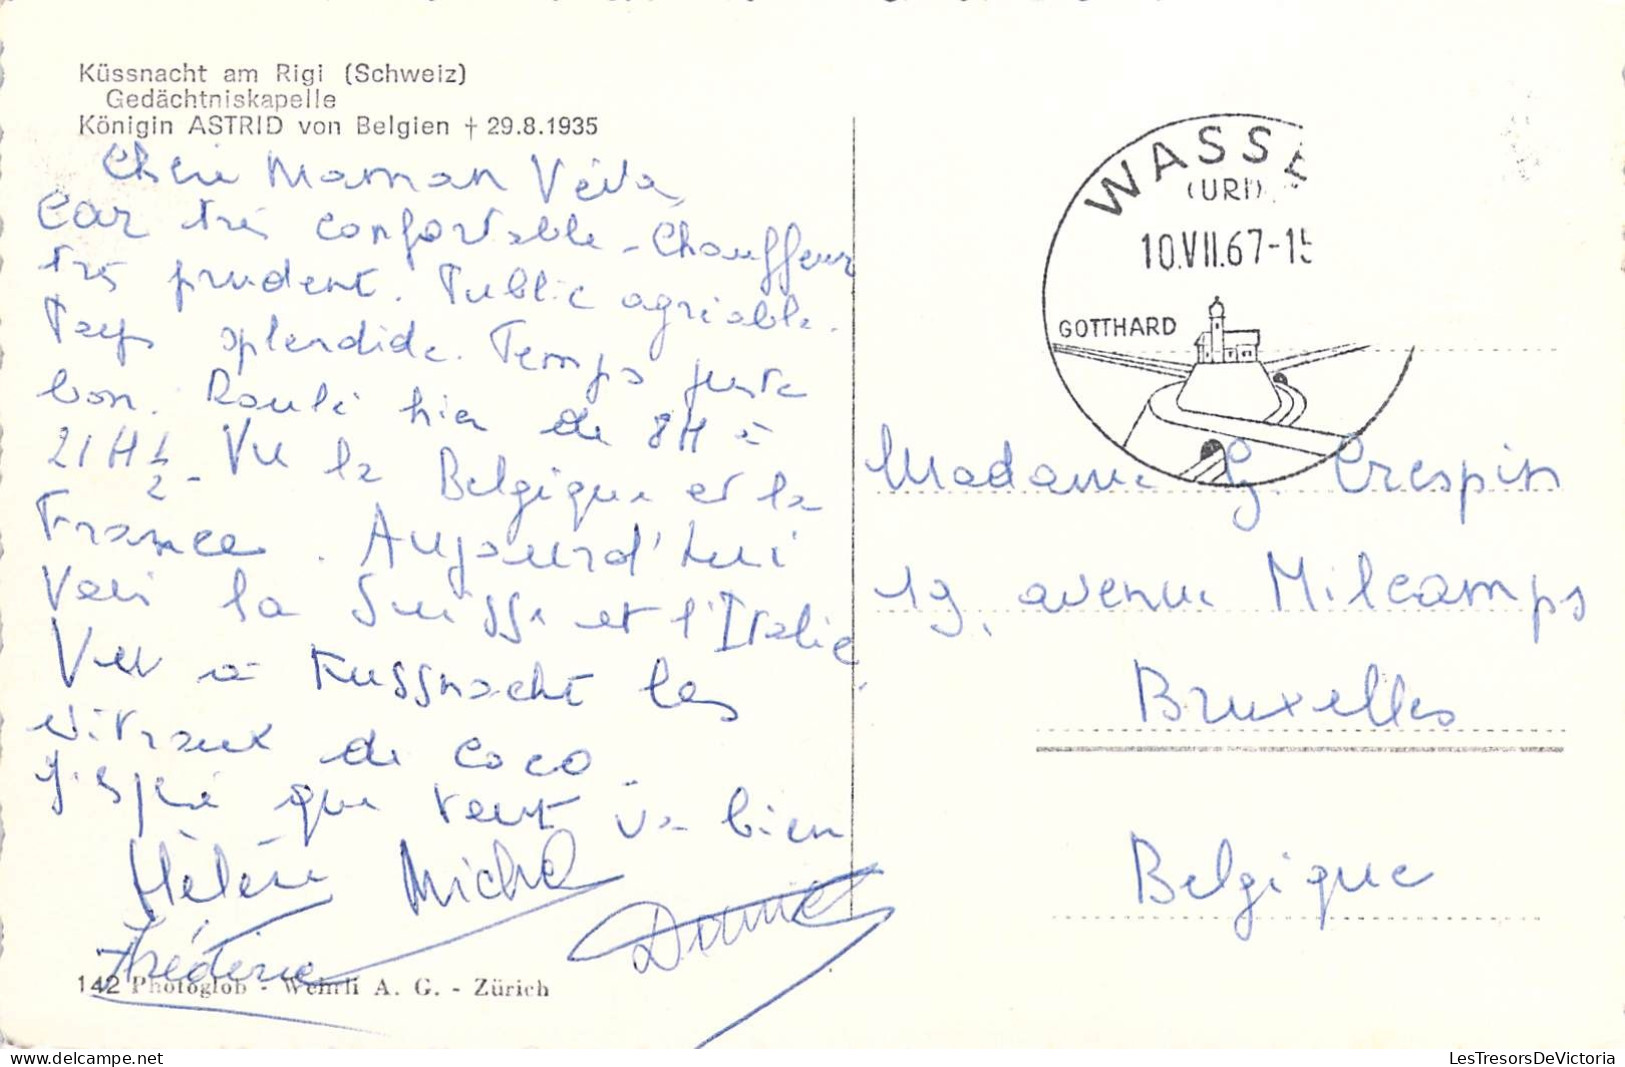 Küssnacht am Rigi (Schweiz)
Gedächtniskapelle
Königin ASTRID von Belgien † 29.8.1935
Chère Maman
Car très confortable - Chauffeur
très prudent. Public agréable.
Pays splendide. Temps juste
bon. Roulé hier de 8H à
21H 1/2 - Vu la Belgique et la
France. Aujourd'hui
la Suisse et l'Italie.
Vu à Kussnacht les
vitraux de Coco.
J'espère que tout va bien
Hélène Michel
Frédéric Daniel
142 Photoglob - Wehrli A. G. - Zürich
WASSE
(URI)
10.VII.67-15
GOTTHARD
Madame G. Crespin
19, avenue Milcamps
Bruxelles
Belgique
LesTresorsDeVictoria